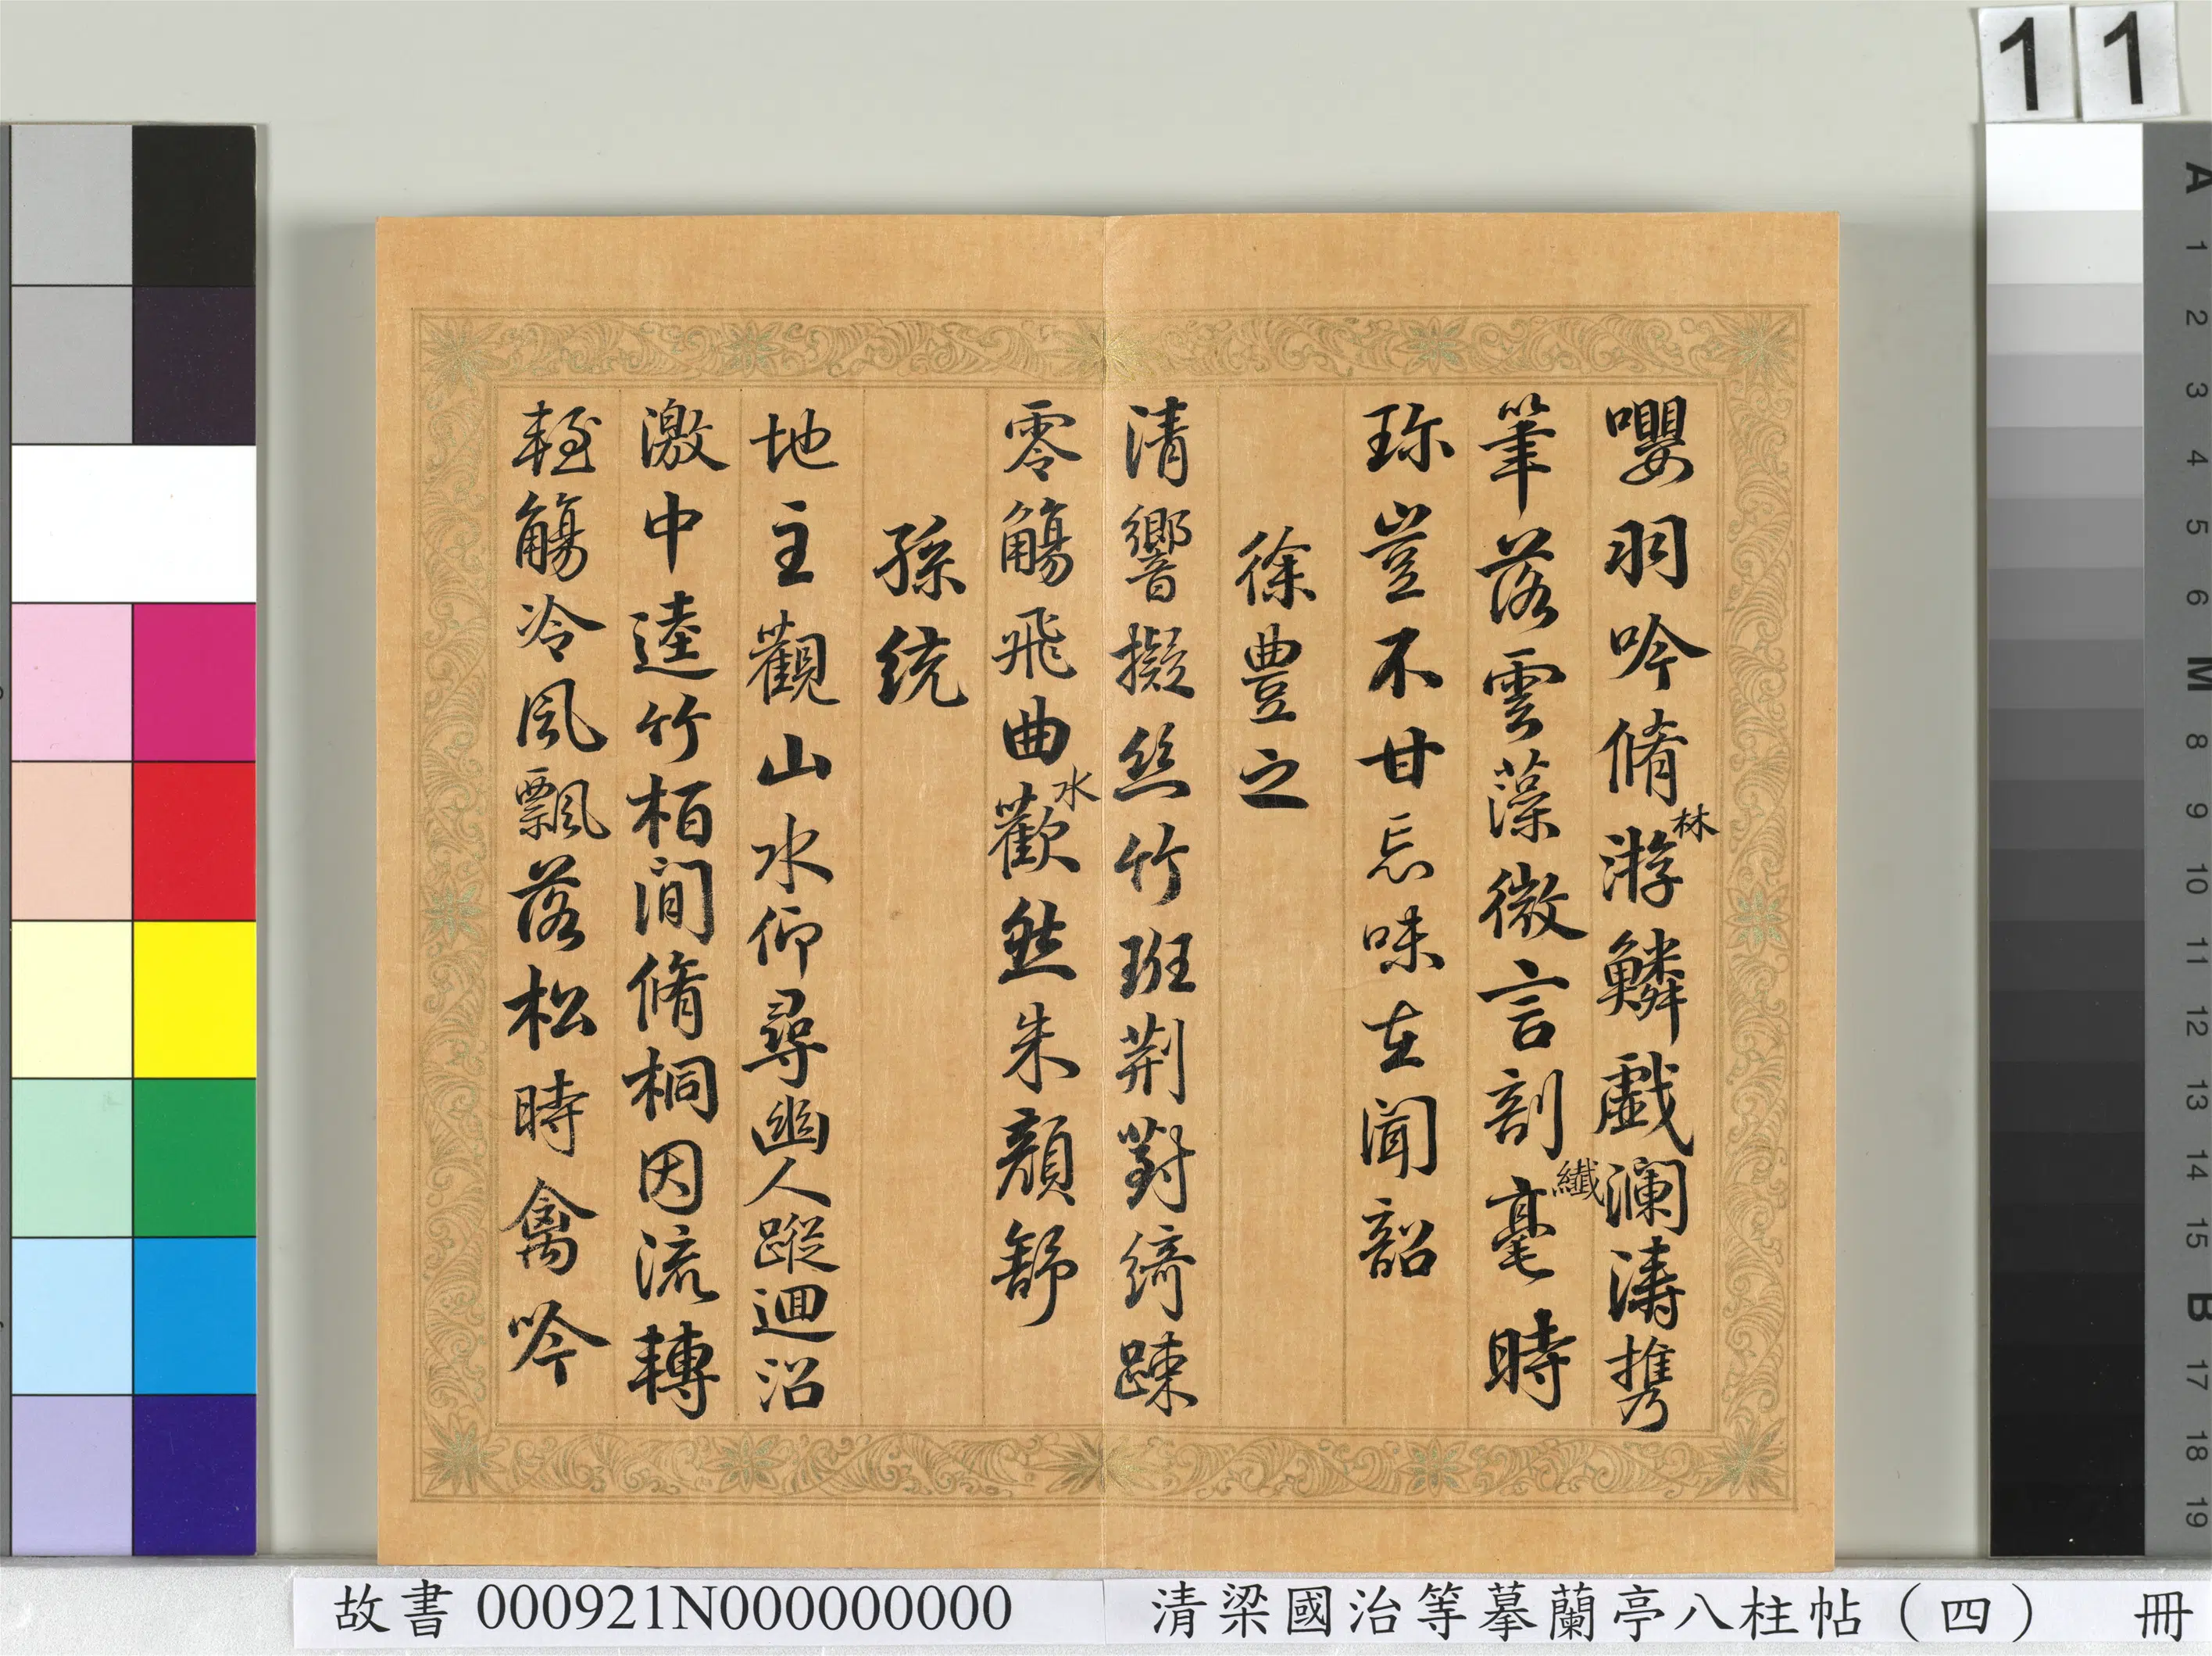 11
嚶羽吟脩林游鱗戲瀾濤攜
筆落雲藻微言剖纖毫時
珎豈不甘忘味在聞韶
徐豊之
清響擬絲竹班荊對綺疎
零觴飛曲水歡然朱顏舒
孫統
地主觀山水仰尋幽人蹤迴沼
激中逵竹栢間脩桐因流轉
輕觴冷風飄落松時禽吟
A 1 2 3 4 5 6 M 8 9 10 11 12 13 14 15 B 17 18 19
故書 000921N000000000 清梁國治等摹蘭亭八柱帖（四） 冊